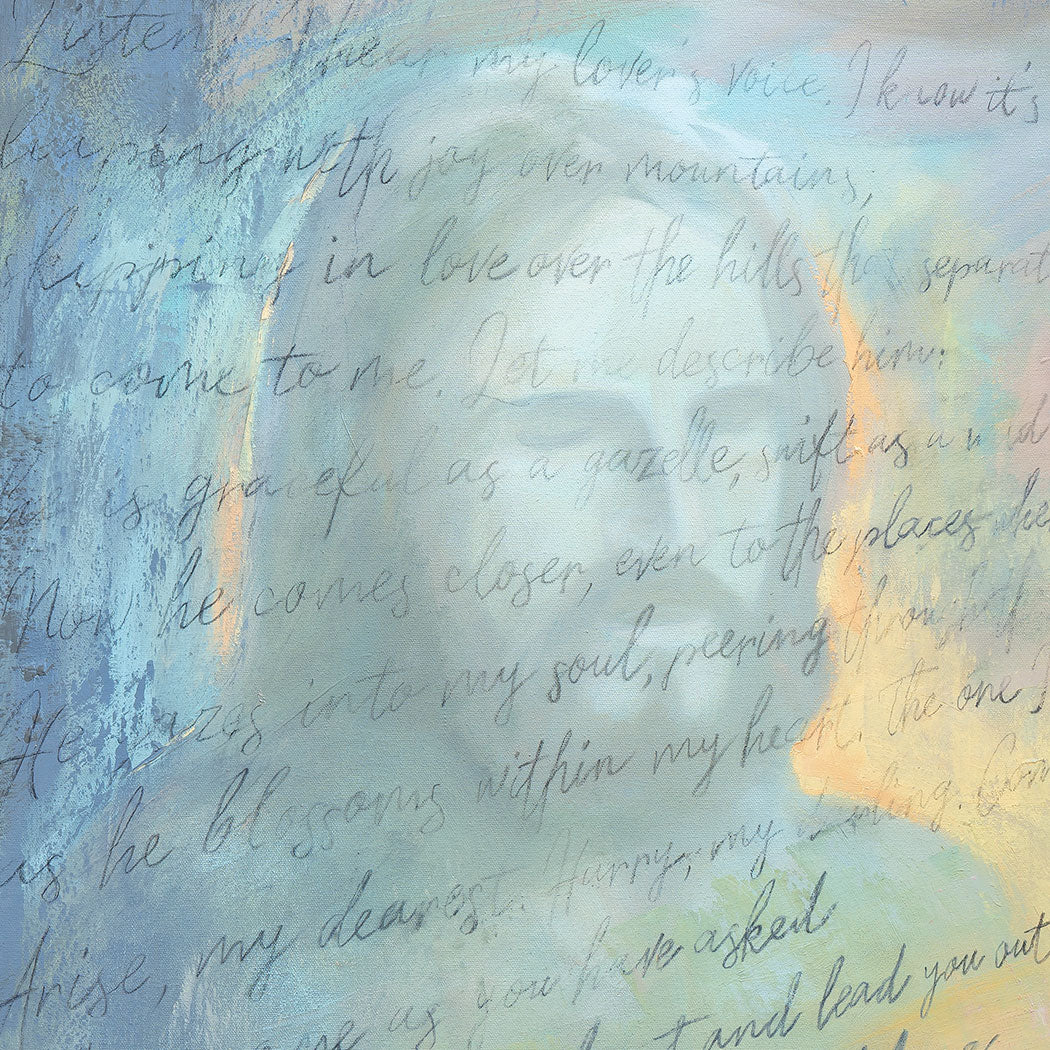 Listen! I hear my lover's voice. I know it's
leaping with joy over mountains,
skipping in love over the hills that separat
to come to me. Let me describe him:
he is graceful as a gazelle, swift as a wild
Now he comes closer, even to the places whe
He gazes into my soul, peering through th
is he blossoms within my heart. The one I
Arise, my dearest. Hurry, my darling. Com
me as you have asked
t and lead you out